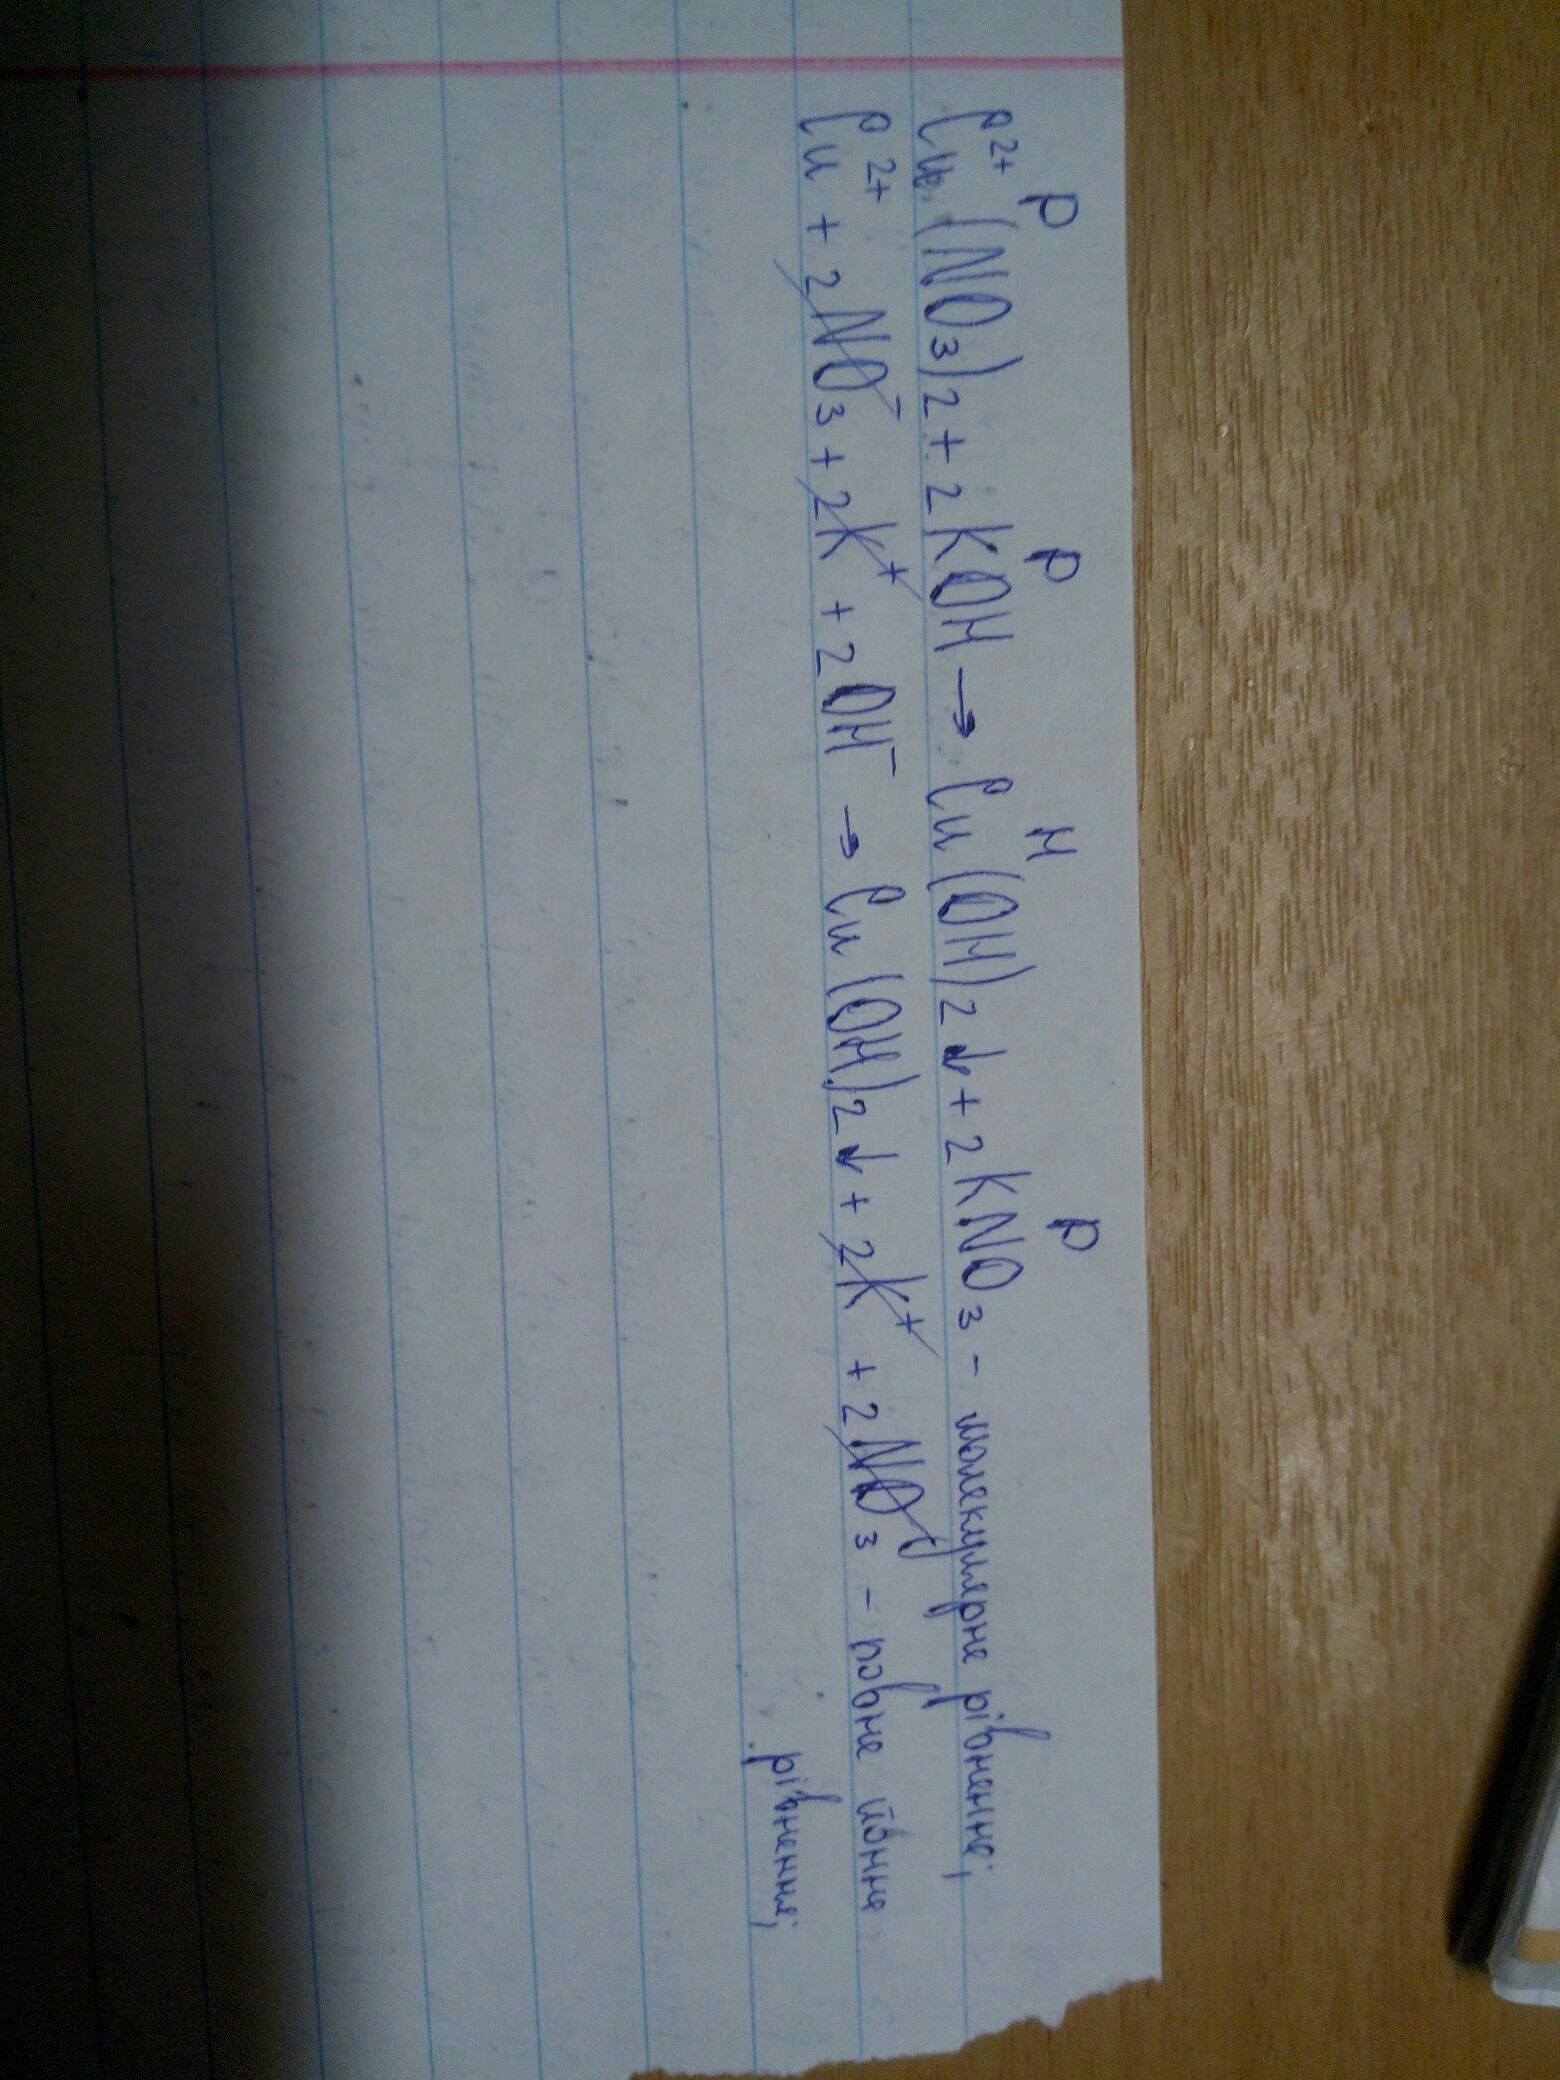 р р н р
Cu²⁺(NO₃)₂ + 2KOH → Cu(OH)₂↓ + 2KNO₃ - молекулярне рівнення;
Cu²⁺ + 2NO₃⁻ + 2K⁺ + 2OH⁻ → Cu(OH)₂↓ + 2K⁺ + 2NO₃⁻ - повне йонне
рівнення;